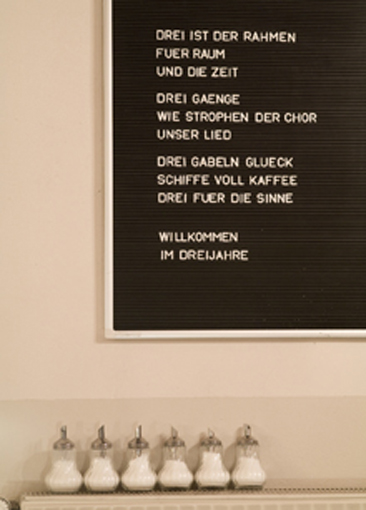 DREI IST DER RAHMEN
FUER RAUM
UND DIE ZEIT
DREI GAENGE
WIE STROPHEN DER CHOR
UNSER LIED
DREI GABELN GLUECK
SCHIFFE VOLL KAFFEE
DREI FUER DIE SINNE
WILLKOMMEN
IM DREIJAHRE